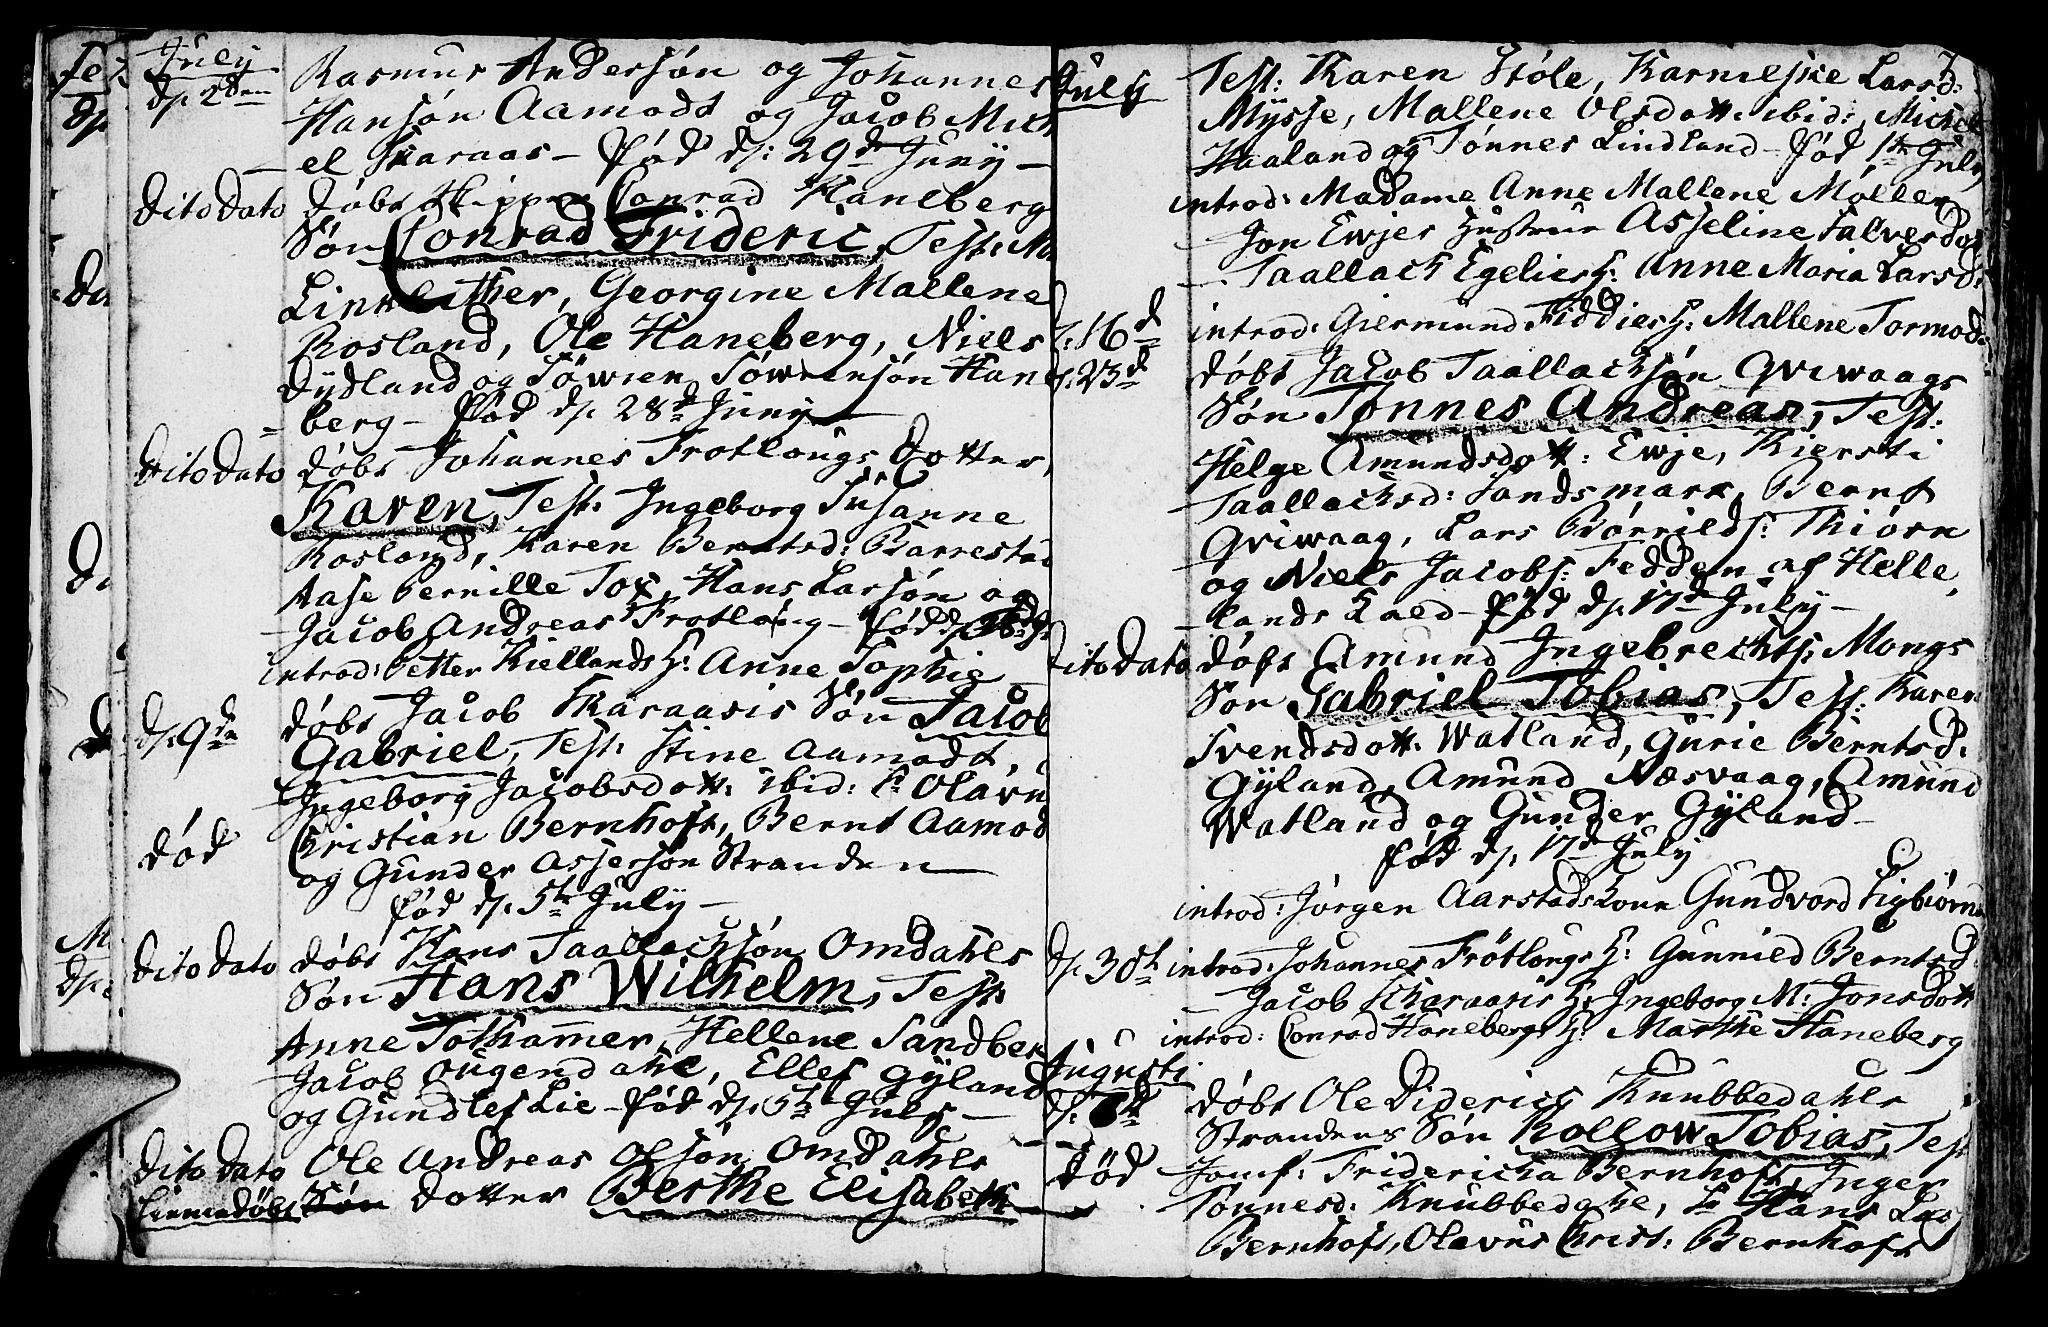 July
d: 2den
Rasmus Andersøn og Johannes
Hansøn Aamodt og Jacob Mich
el Skaraas – fød d: 29de Juny –
dito dato døbt Skipper Conrad Haneberg
Søn Conrad Frideric, Test: M
Georgine Mallene
Rosland, Ole Haneberg, Niels
Dydland og Søwren Søwrensøn Hane
berg – fød d: 28d Juny –
dito dato døbt Johannes Frotlongs dotter
Karen, Test: Ingeborg Susanne
Rosland, Karen Berntsd: Barrestad
Aase Pernille Hans Larsøn og
Jacob Andreas Frotlong – fød
introd: Petter Kiellands H: Anne Sophie
d: 9de døbt Jacob Skaraasis Søn Jacob
Gabriel, Test: Stine Aamodt,
Ingeborg Jacobsdott: ibid: Olavus
død Christian Bernhoft, Bernt Aamod
og Gunder Assersøn Stranden
fød d: 5te July –
dito dato døbt Hans Taallachsøn Omdahls
Søn Hans Wilhelm, Test:
Anne Tothamer, Hellene Sandbek
Jacob Ougendahl, Ellef Gyland
og Gundlef Lie – fød d: 5te July –
dito dato Ole Andreas Olsøn Omdahls
hiemedøbt Søn dotter Berthe Elisabeth
July Test: Karen Støle, Karnelske Larsd:
Mysse, Mallene Olsdott: ibid:, Michel
Haaland og Tønnes Lindland – fød 1ste July
introd: Madame Anne Mallene Møller
– Jon Ewjes Hustrue Asseline Salvesdot
– Taallach Egelies H: Anne Maria Larsd:
d: 16d introd: Giermund Fiddies H: Mallene Tormods
d: 23d døbt Jacob Taallachsøn Qviwaags
Søn Tønnes Andreas, Test:
Helge Amundsdott: Ewje, Kiersti
Taallachsd: Sandsmark, Bernt
Qviwaag, Lars Børrilds: Thiørn
og Niels Jacobs: Fedden af Helle
lands Kald – fød d: 17d July –
dito dato døbt Amund Ingebrechts: Mongs
Søn Gabriel Tobias, Test: Karen
Svendsdott: Watland, Gurie Berntsd:
Gyland, Amund Næsvaag, Amund
Watland og Gunder Gyland –
fød d: 17d July
introd: Jørgen Aarstads Kone Gundvord Sigbiørns
d: 30te introd: Johannes Frøtlongs H: Gunnild Berntsd
– Jacob Skaraasis H: Ingeborg M: Jonsdott
introd: Conrad Hanebergs H: Marthe Haneberg
Augusti
døbt Ole Diderics Knubbedahls
Strandens Søn Rollow Tobias, Test
død Jomf: Fridericha Bernhoft, Inger
Tønnesd: Knubbedahl, Hans
Bernhoft, Olavus Christ: Bernhoft